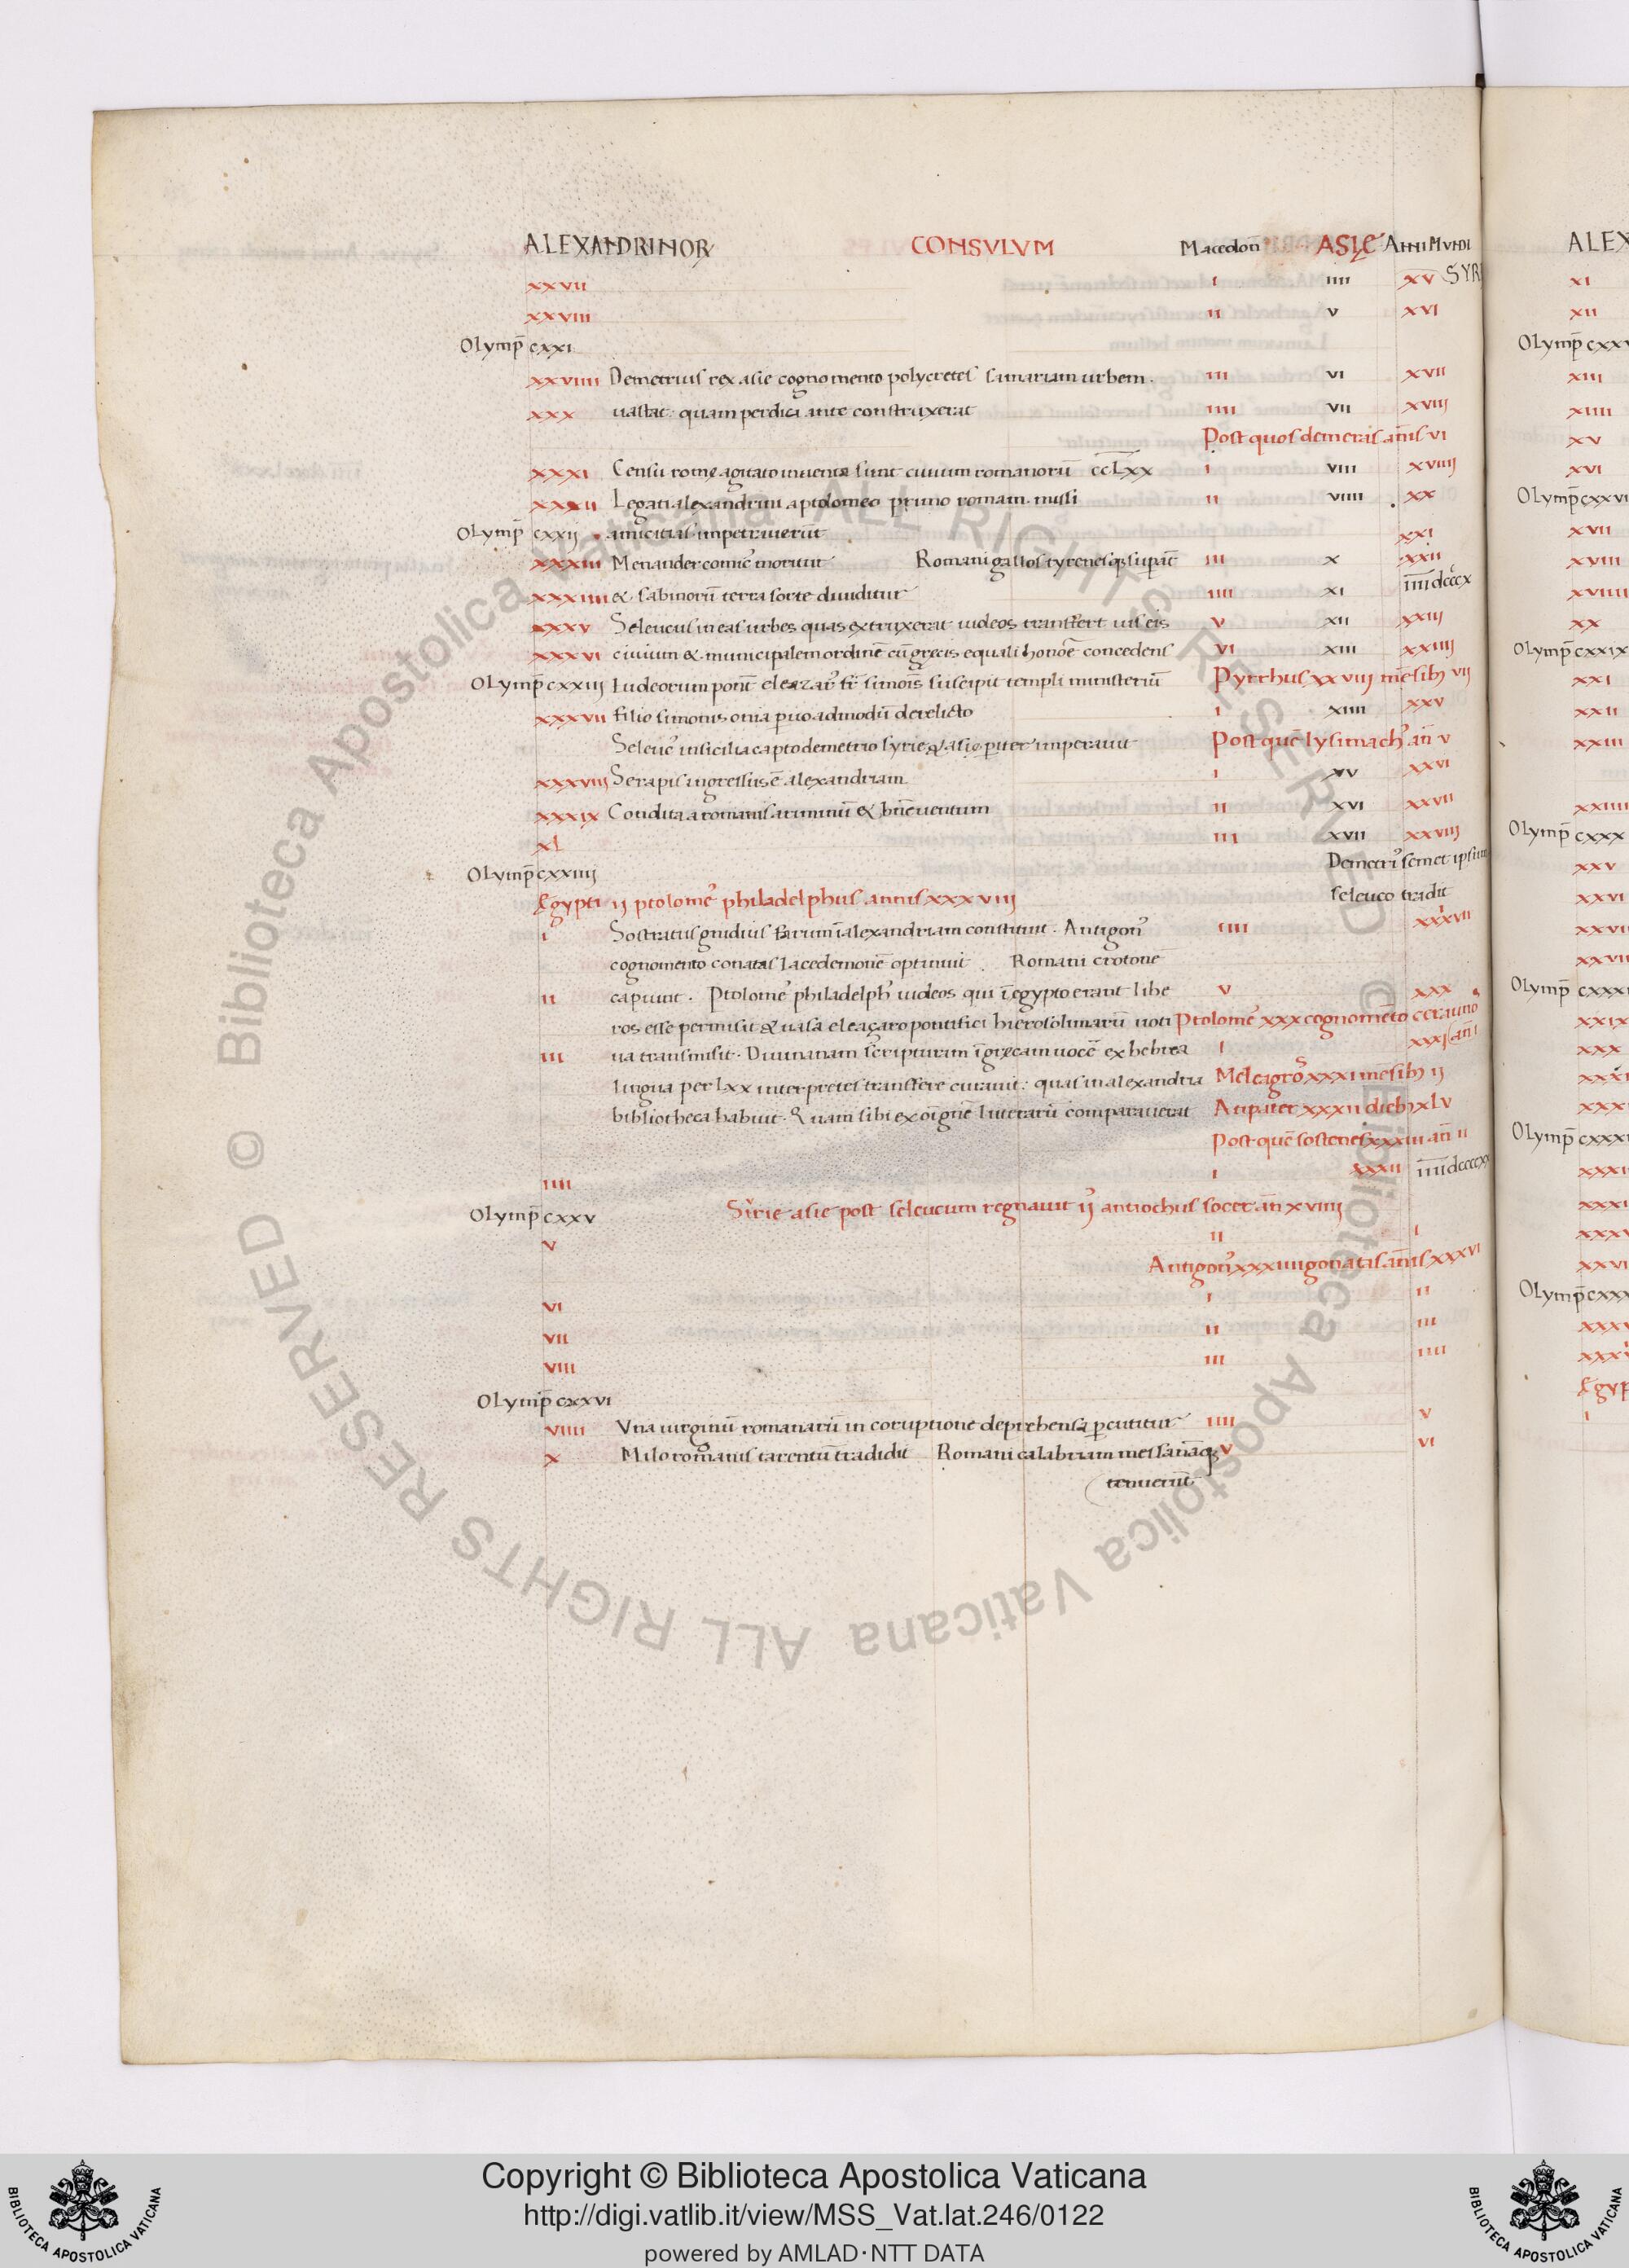 ALEXANDRINOR CONSVLVM Macedon ASIE ANNI MVNDI
SYRI
xxvii i iiii xv
xxviii ii v xvi
Olymp̄ cxxi
xxviiii Demetrius rex asie cognomento polycretes samariam urbem. iii vi xvii
xxx uastat. quam perdica ante construxerat iiii vii xviiij
Post quos demetris ann̄is vi
xxxi Censu rome agitato inuenta sunt ciuium romanorū cclxx i viii xviiij
xxxii Legati alexandrini aptolomeo primo romam. missi ii viiii xx
Olymp̄ cxxij amicitias impetrauerūt xxi
xxxiii Menander comic' moritur Romani gallos tyrenesq; supāt iii x xxii
xxxiiii & sabinorū terra sorte diuiditur iiii xi iiiidccccx
xxxv Seleucus in eas urbes quas extruxerat iudeos transfert ius eis v xii xxiii
xxxvi ciuium &. municipalem ordinē cū grecis equali honōe concedens vi xiii xxiiij
Olymp̄ cxxiij Iudeorum pont̄ eleazar' fr̄ simonis suscipit templi ministeriū Pyrrhus xxviiij mēsib; vij
xxxvii filio simonis onia paruo admodū derelicto i xiiii xxv
Seleuc' in sicilia capto demetrio syrie & asie pariter imperauit Post quē lysimach' an̄ v
xxxviij Serapis ingressus ē alexandriam i xv xxvi
xxxix Condita a romanis ariminū & bn̄euentum ii xvi xxvii
xl iii xvii xxviij
Demetri' semet ipsum
Olymp̄ cxxiiij
seleuco tradit
Egypti ij ptolome' philadelphus annis xxxviij
i Sostratus gnidius farum ī alexandriam constituit. Antigon' iiii
cognomento conatas lacedemonē optinuit. Romani crotonē
ii capiunt. Ptolome' philadelph' iudeos qui ī egypto erant libe v xxx
ros esse permisit & uasa eleazaro pontifici hierosolimarū uoti Ptolome' xxx cognomēto cerauno
iii ua transmisit. Diuinam scripturam ī grecam uocē ex hebrea i xxxj an̄ i
lingua per lxx interpretes transfere curauit: quas in alexandria Meleagros xxxi mēsib; ij
bibliotheca habuit. Quam sibi ex oīgnē literarū comparauerat Atipater xxxii dieb; xlv
Post quē sostenes xxxiii an̄ ii
iiii i xxxii iiiidccccxx
Olymp̄ cxxv Sirie asie post seleucum regnauit ij' antiochus socer an̄ xviiij
v ii i
Antigon' xxxiiii gonatas an̄is xxxvi
vi i ii
vii ii iii
viii iii iiii
Olymp̄ cxxvi
viiii Vna uirginū romanarū in coruptione deprehensa pcutitur iiii v
x Milo romanus tarentū tradidit Romani calabriam messanāq; v vi
tenuerūt
ALEX
xi
xii
Olymp̄ cxxv
xiii
xiiii
xv
xvi
Olymp̄ cxxvi
xvii
xviii
xviiii
xx
Olymp̄ cxxix
xxi
xxii
xxiii
xxiiii
Olymp̄ cxxx
xxv
xxvi
xxvii
xxvii
Olymp̄ cxxxi
xxix
xxx
xxxi
xxxi
Olymp̄ cxxxi
xxxi
xxxi
xxxv
xxvi
Olymp̄ cxxx
xxxv
xxxv
Egyp
i
Copyright © Biblioteca Apostolica Vaticana
http://digi.vatlib.it/view/MSS_Vat.lat.246/0122
powered by AMLAD·NTT DATA
BIBLIOTECA APOSTOLICA VATICANA
BIBLIOTECA APOSTOLICA VATICANA
© Biblioteca Apostolica Vaticana ALL RIGHTS RESERVED
© Biblioteca Apostolica Vaticana ALL RIGHTS RESERVED